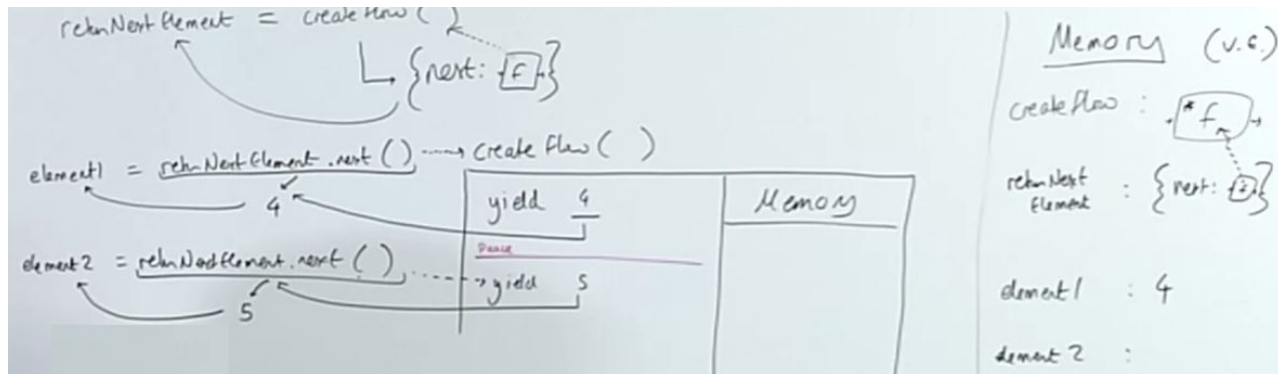 returnNextElement = createFlow( )
{next: f}
element1 = returnNextElement.next() createFlow( )
4
yield 4
Pause
element2 = returnNextElement.next()
yield 5
5
Memory
Memory (V.E.)
createFlow : *f
returnNext
Element : {next: f}
element1 : 4
element2 :